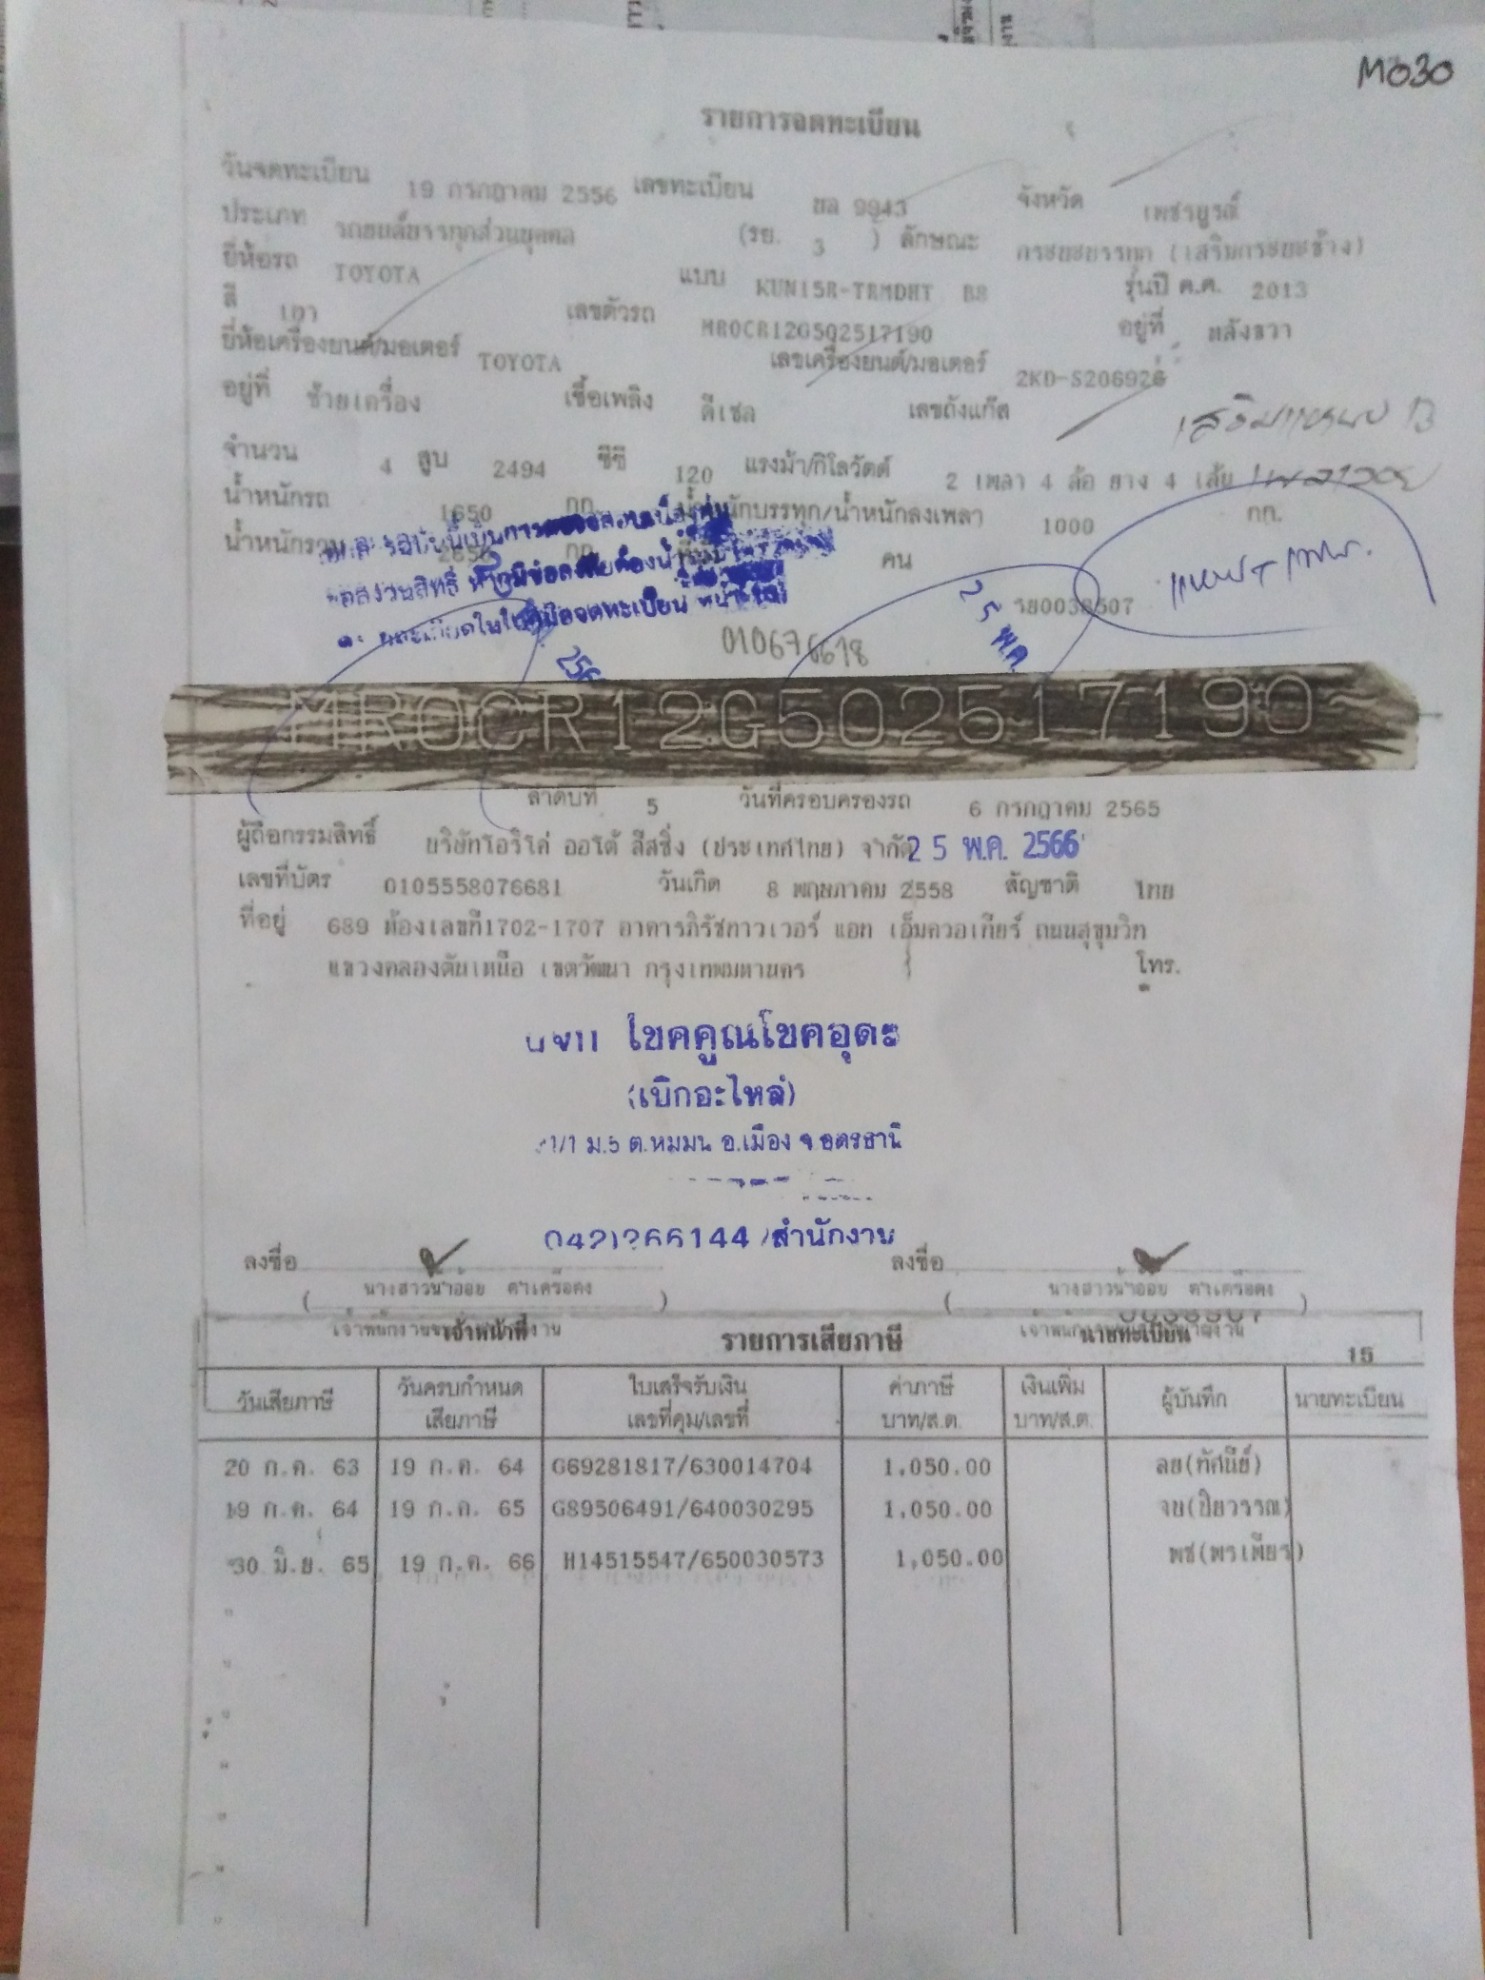 M030
รายการจดทะเบียน
วันจดทะเบียน 19 กรกฎาคม 2556 เลขทะเบียน ผล 9943 จังหวัด เพชรบูรณ์
ประเภท รถยนต์บรรทุกส่วนบุคคล (รย. 3 ) ลักษณะ กระบะบรรทุก (เสริมกระบะข้าง)
ยี่ห้อรถ TOYOTA แบบ KUN15R-TRMDHT B8 รุ่นปี ค.ศ. 2013
สี เทา เลขตัวรถ MR0CR12G502517190 อยู่ที่ หลังขวา
ยี่ห้อเครื่องยนต์/มอเตอร์ TOYOTA เลขเครื่องยนต์/มอเตอร์ 2KD-S206926
อยู่ที่ ซ้ายเครื่อง เชื้อเพลิง ดีเซล เลขถังแก๊ส
เสริมแหนบ
จำนวน 4 สูบ 2494 ซีซี 120 แรงม้า/กิโลวัตต์ 2 เพลา 4 ล้อ ยาง 4 เส้น เพลาลอย
น้ำหนักรถ 1650 กก. น้ำหนักบรรทุก/น้ำหนักลงเพลา 1000 กก.
น้ำหนักรวม 2650 กก. คน
รย0038507
010676618
25 พ.ค. 256
MR0CR12G502517190
ลำดับที่ 5 วันที่ครอบครองรถ 6 กรกฎาคม 2565
ผู้ถือกรรมสิทธิ์ บริษัทโอริโค่ ออโต้ ลีสซิ่ง (ประเทศไทย) จำกัด 25 พ.ค. 2566
เลขที่บัตร 0105558076681 วันเกิด 8 พฤษภาคม 2558 สัญชาติ ไทย
ที่อยู่ 689 ห้องเลขที่1702-1707 อาคารภิรัชทาวเวอร์ แอท เอ็มควอเทียร์ ถนนสุขุมวิท
แขวงคลองตันเหนือ เขตวัฒนา กรุงเทพมหานคร โทร.
โชคคูณโชคอุดร
(เบิกอะไหล่)
ม.5 ต.หมูม่น อ.เมือง จ.อุดรธานี
042)266144 /สำนักงาน
ลงชื่อ ลงชื่อ
( นางสาวน้ำอ้อย คำเครือคง ) ( นางสาวน้ำอ้อย คำเครือคง )
เจ้าหน้าที่ รายการเสียภาษี นายทะเบียน
0038507
15
วันเสียภาษี วันครบกำหนดเสียภาษี ใบเสร็จรับเงิน เลขที่คุม/เลขที่ ค่าภาษี บาท/ส.ต. เงินเพิ่ม บาท/ส.ต. ผู้บันทึก นายทะเบียน
20 ก.ค. 63 19 ก.ค. 64 G69281817/630014704 1,050.00 ลย(ทัศนีย์)
19 ก.ค. 64 19 ก.ค. 65 G89506491/640030295 1,050.00 จย(ปิยวรรณ)
30 มิ.ย. 65 19 ก.ค. 66 H14515547/650030573 1,050.00 พช(พรเพียร)